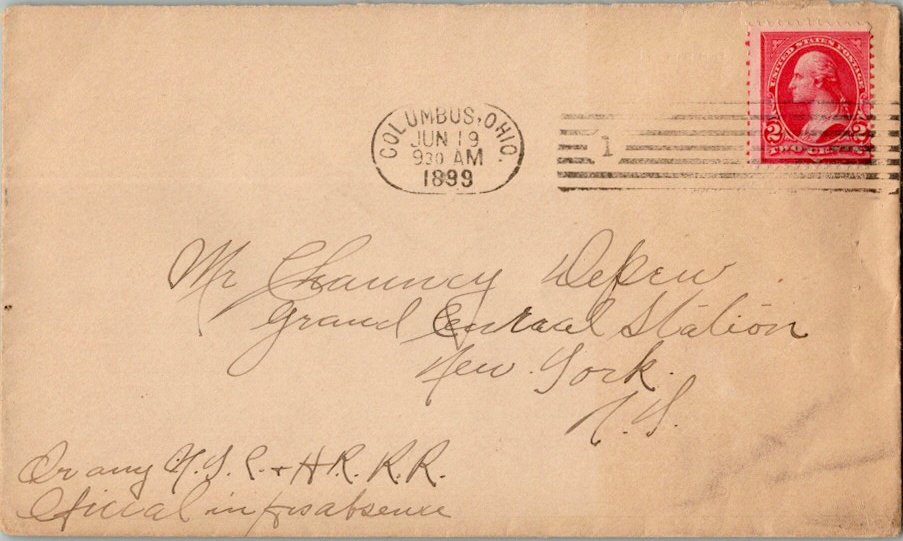 UNITED STATES POSTAGE
2 2
TWO CENTS
COLUMBUS, OHIO.
JUN 19
930 AM
1899
1
Mr Chauncy Depew
Grand Central Station
New York.
N.Y.
Or any N.Y.C. + H.R. R.R.
Official in his absence